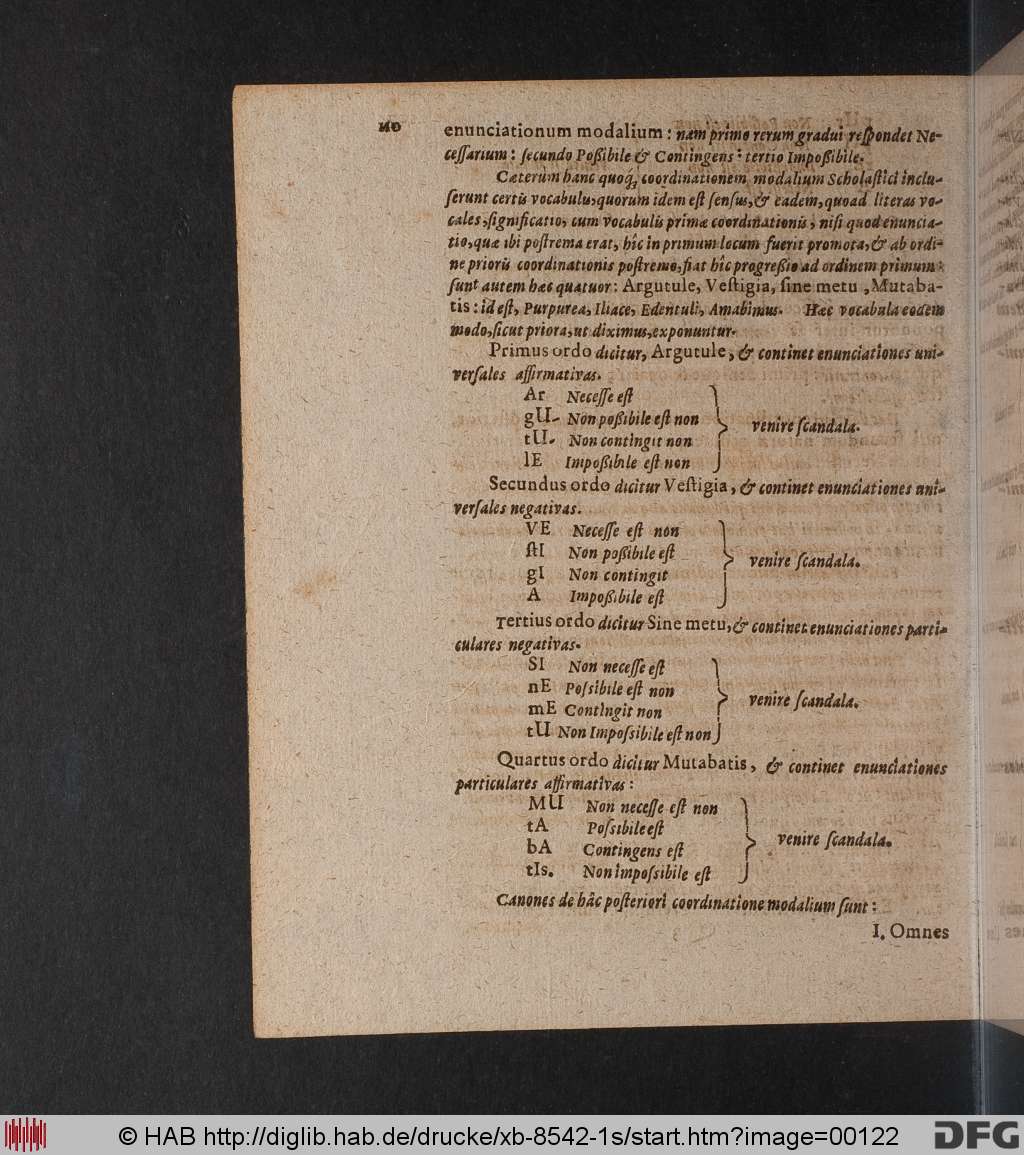 enunciationum modalium: nam primo rerum gradui respondet Ne-
cessarium: secundo Poßibile & Contingens: tertio Impoßibile.
Cæterùm hanc quoq; coordinationem modalium Scholastici inclu-
serunt certis vocabulis, quorum idem est sensus, & eadem, quoad literas vo-
cales, significatio, cum vocabulis primæ coordinationis, nisi quod enuncia-
tio, quæ ibi postrema erat, hîc in primum locum fuerit promota, & ab ordi-
ne prioris coordinationis postremo, fiat hîc progreßio ad ordinem primum:
sunt autem hæc quatuor: Argutule, Vestigia, sine metu, Mutaba-
tis: id est, Purpurea, Iliace, Edentuli, Amabimus. Hæc vocabula eodem
modo, sicut priora, ut diximus, exponuntur.
Primus ordo dicitur, Argutule, & continet enunciationes uni-
versales affirmativas.
Ar Necesse est
gU- Non poßibile est non
tU- Non contingit non
lE Impoßibile est non
venire scandala.
Secundus ordo dicitur Vestigia, & continet enunciationes uni-
versales negativas.
VE Necesse est non
stI Non poßibile est
gI Non contingit
A Impoßibile est
venire scandala.
Tertius ordo dicitur Sine metu, & continet enunciationes parti-
culares negativas.
SI Non necesse est
nE Possibile est non
mE Contingit non
tU Non Impossibile est non
venire scandala.
Quartus ordo dicitur Mutabatis, & continet enunciationes
particulares affirmativas:
MU Non necesse est non
tA Possibile est
bA Contingens est
tIs. Non impossibile est
venire scandala.
Canones de hâc posteriori coordinatione modalium sunt:
I. Omnes
© HAB http://diglib.hab.de/drucke/xb-8542-1s/start.htm?image=00122
DFG